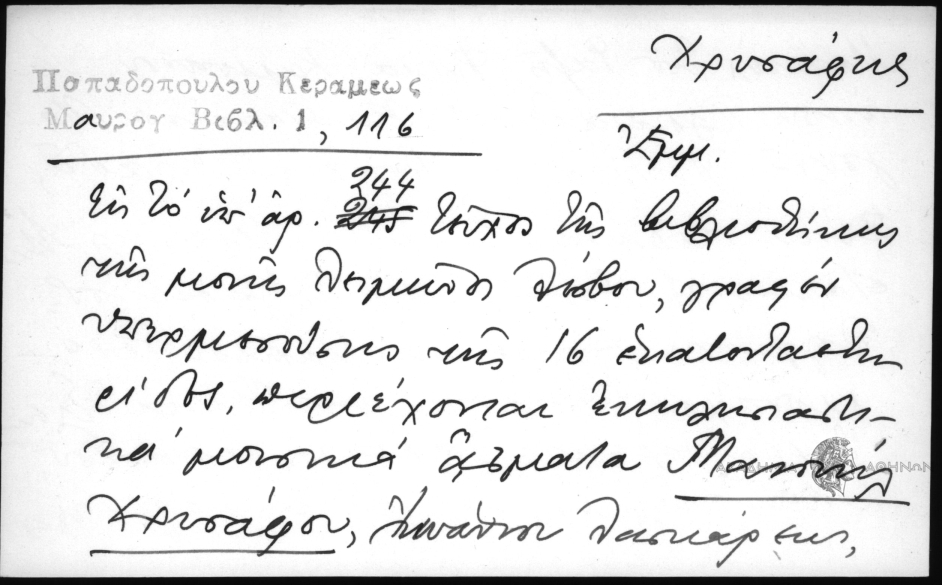 Χρυσάφης
Παπαδοπούλου Κεραμέως
Μαυρογ Βιβλ. 1, 116
Ἐμμ.
244
Εἰς τὸ ὑπ' ἀρ. 245 τεῦχος τῆς βιβλιοθήκης
τῆς μονῆς Λειμῶνος Λέσβου, γραφὲν
υπερμεσούσης τῆς 16 ἑκατονταετη
ρίδος, περιέχονται ἐκκλησιαστι-
κά μουσικά ᾄσματα Μανουὴλ
ΑΚΑΔΗΜΙΑ ΑΘΗΝΩΝ
Χρυσάφου, Λασκάρεως,